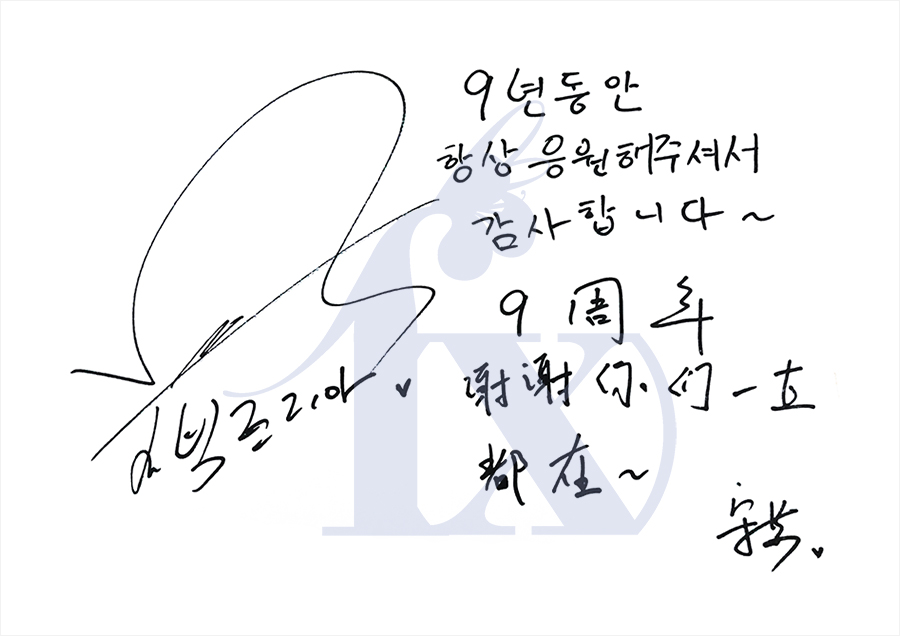 9년동안
항상 응원해주셔서
감사합니다~
9 周年
谢谢你们一直
都在~
빅토리아 ♥
宋茜 ♥
fx